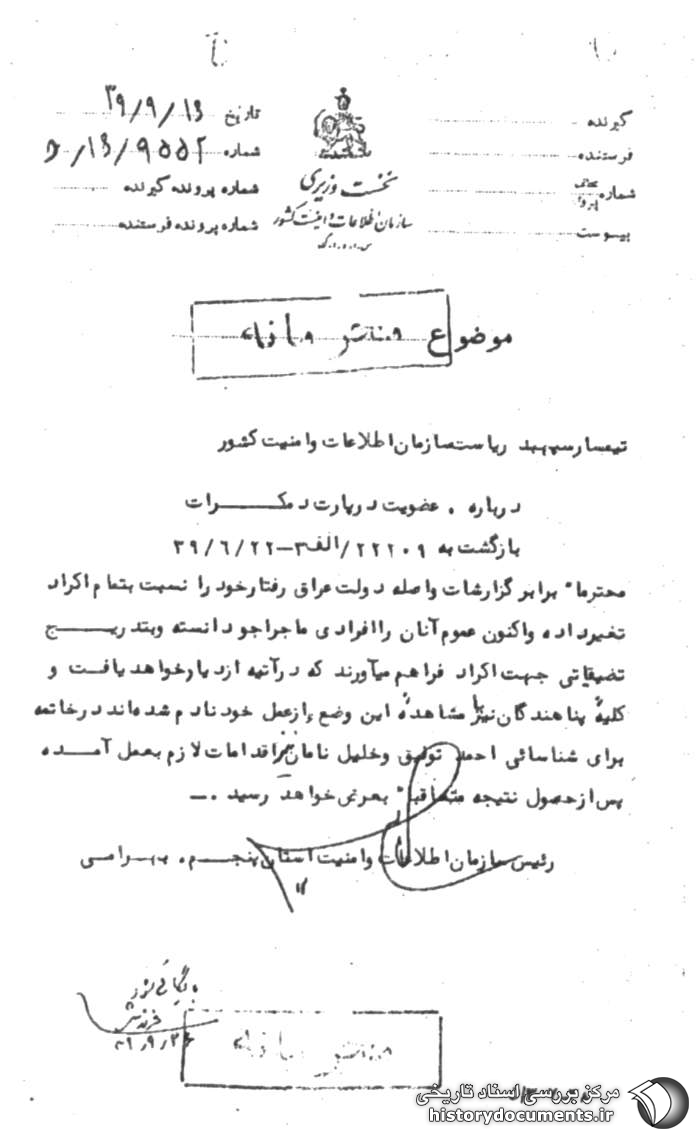 گیرنده
فرستنده
شماره
پیوست
نخست وزیری
سازمان اطلاعات و امنیت کشور
س.ا.و.ا.ک
تاریخ ۳۹/۹/۱۶
شماره ۹۵۵۲/۱۶/د
شماره پرونده گیرنده
شماره پرونده فرستنده
موضوع
تیمسار سپهبد ریاست سازمان اطلاعات و امنیت کشور
درباره . عضویت در پارت دمکرات
بازگشت به ۲۲۲۰۹/الف۳-۳۹/۶/۲۲
محترما" برابر گزارشات واصله دولت عراق رفتار خود را نسبت بتمام اکراد
تغیر داده و اکنون عموم آنان را افرادی ماجراجو دانسته و بتدریج
تضیقاتی جهت اکراد فراهم میآورند که در آتیه ازدیاد خواهد یافت و
کلیهٔ پناهندگان نیز با مشاهدهٔ این وضع از عمل خود نادم شده‌اند در خاتمه
برای شناسائی احمد توفیق و خلیل نامان نیز اقدامات لازم بعمل آمده
پس از حصول نتیجه متعاقبا" بعرض خواهد رسید .—
رئیس سازمان اطلاعات و امنیت استان پنجم . بهرامی
بایگانی شود
۳۹/۹/۲۶
مرکز بررسی اسناد تاریخی
historydocuments.ir